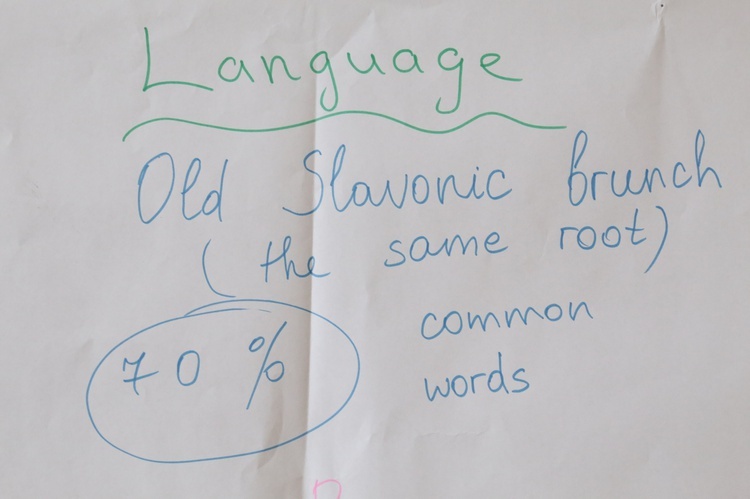 Language
Old Slavonic brunch
(the same root)
70 % common
words